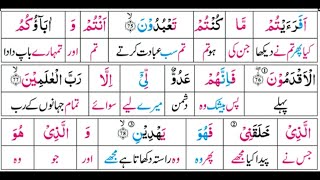 اَفَرَءَيْتُمْ مَّا كُنْتُمْ تَعْبُدُوْنَ اَنْتُمْ وَ اٰبَآؤُكُمُ
کیا پھر تم نے دیکھا جن کی ہو تم تم سب عبادت کرتے تم اور تمہارے باپ دادا
الْاَقْدَمُوْنَ فَاِنَّهُمْ عَدُوٌّ لِّيْۤ اِلَّا رَبَّ الْعٰلَمِيْنَ
پہلے پس بیشک وہ دشمن میرے لیے سوائے تمام جہانوں کے رب
الَّذِيْ خَلَقَنِيْ فَهُوَ يَهْدِيْنِ وَ الَّذِيْ هُوَ
جس نے پیدا کیا مجھے پھر وہ وہ راستہ دکھاتا ہے مجھے اور جو وہ